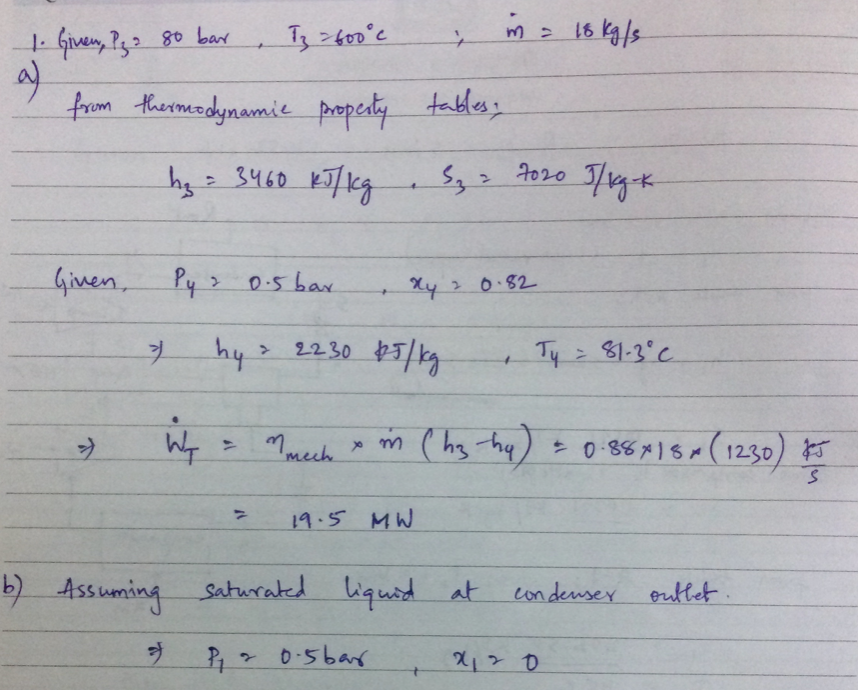 1. Given, P₃ = 80 bar , T₃ = 600°C ; ṁ = 18 kg/s
a)
from thermodynamic property tables;
h₃ = 3460 kJ/kg . S₃ = 7020 J/kg-K
Given, P₄ = 0.5 bar , x₄ = 0.82
⇒ h₄ = 2230 kJ/kg , T₄ = 81.3°C
⇒ Ẇ_T = η_mech × ṁ (h₃ - h₄) = 0.88 × 18 × (1230) kJ/s
= 19.5 MW
b) Assuming saturated liquid at condenser outlet.
⇒ P₁ = 0.5 bar , x₁ = 0